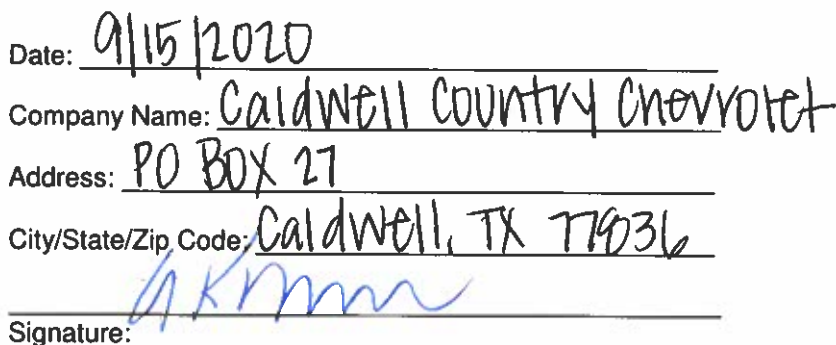 Date: 9/15/2020
Company Name: Caldwell Country Chevrolet
Address: PO BOX 27
City/State/Zip Code: Caldwell, TX 77836
Signature: